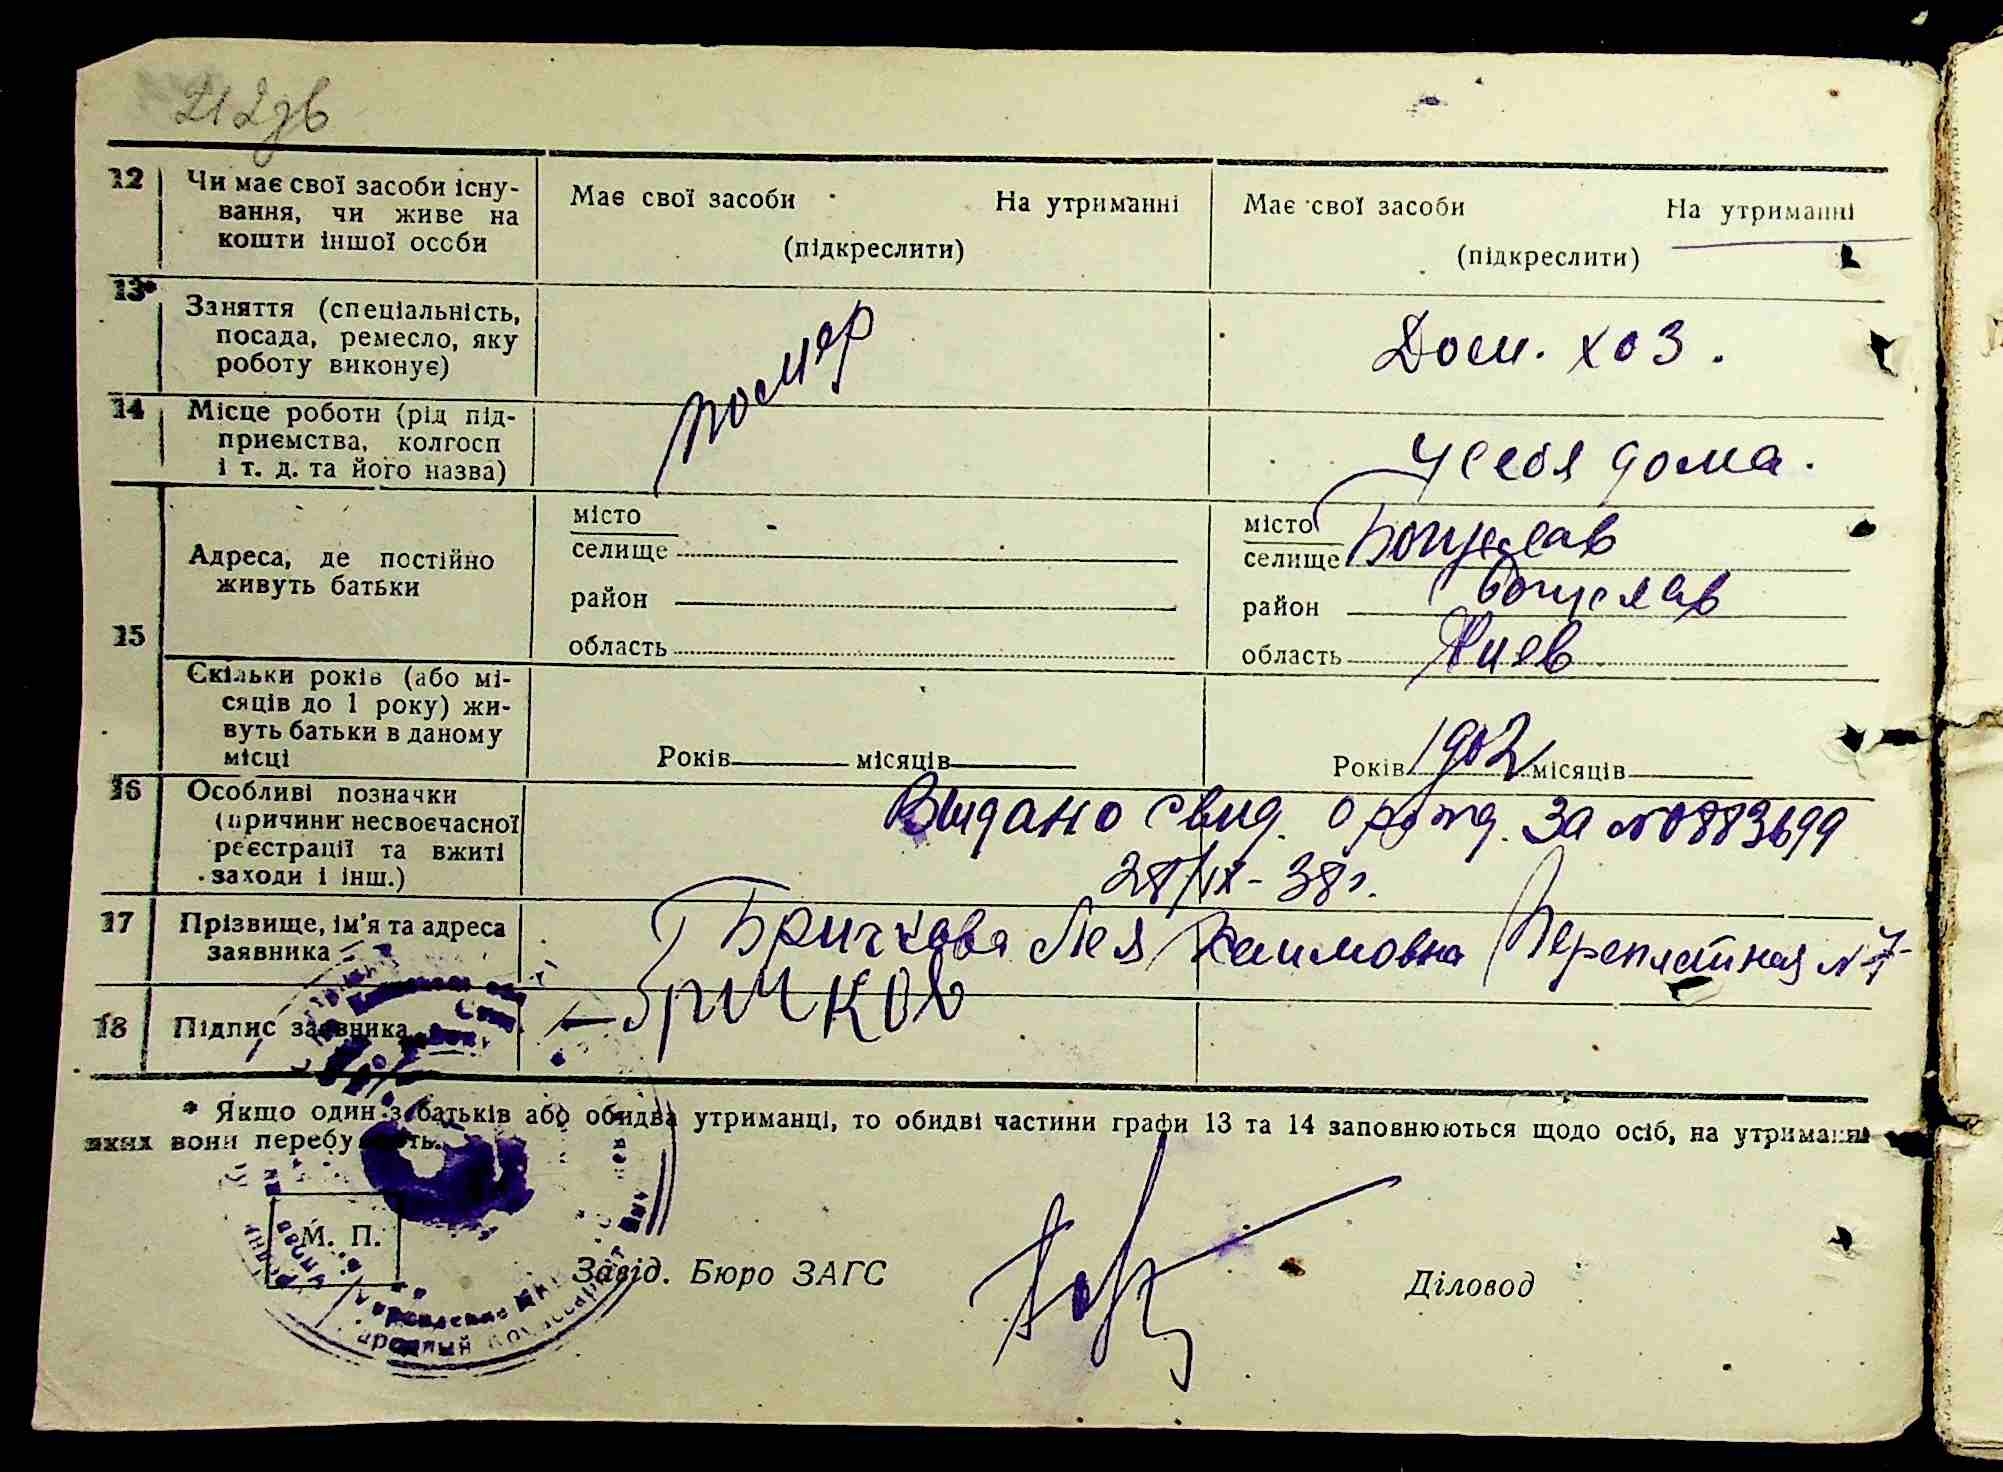 212дв
12 Чи має свої засоби існу-
вання, чи живе на
кошти іншої особи
Має свої засоби На утриманні
(підкреслити)
Має свої засоби На утриманні
(підкреслити)
13* Заняття (спеціальність,
посада, ремесло, яку
роботу виконує)
помер
Дом. хоз.
14 Місце роботи (рід під-
приємства, колгосп
і т. д. та його назва)
у себя дома.
15
Адреса, де постійно
живуть батьки
місто
селище
район
область
місто
селище Богуслав
район Богуслав
область Киев
Скільки років (або мі-
сяців до 1 року) жи-
вуть батьки в даному
місці
Років місяців
Років 1902 місяців
16 Особливі позначки
(причини несвоєчасної
реєстрації та вжиті
заходи і інш.)
Видано свид. о рожд. за №0883699
28/IX-38г.
17 Прізвище, ім'я та адреса
заявника
Бричкова Лея Хаимовна Переплетная №7
18 Підпис заявника
Бричков
* Якщо один з батьків або обидва утриманці, то обидві частини графи 13 та 14 заповнюються щодо осіб, на утриманні
яких вони перебувають.
М. П.
Завід. Бюро ЗАГС
Діловод